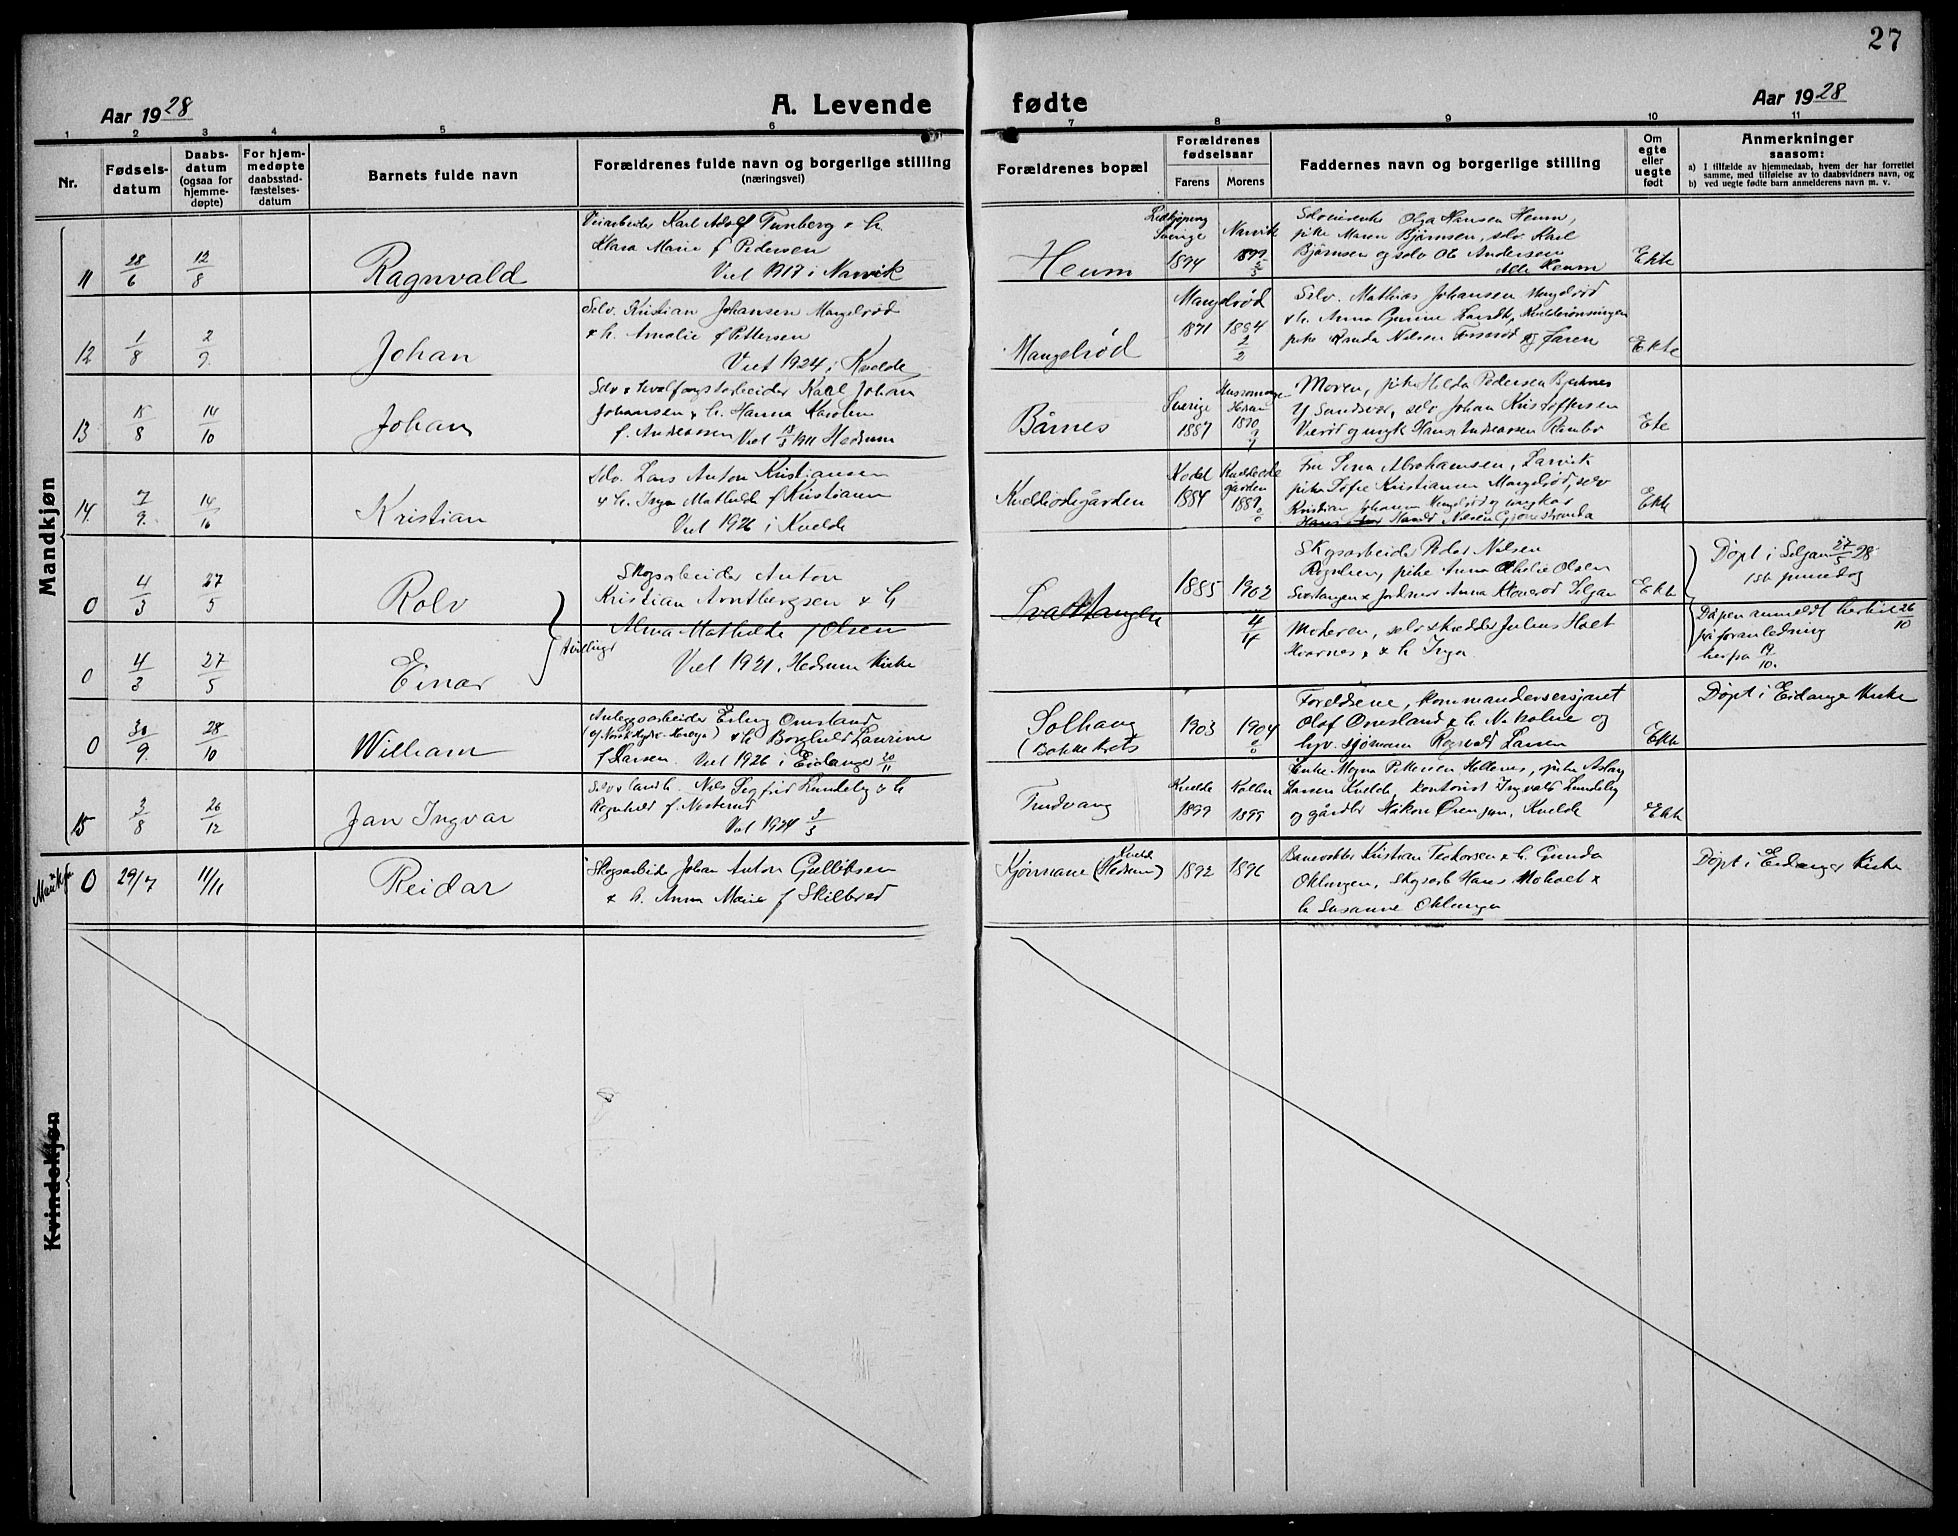 27
Aar 1928
A. Levende fødte
Aar 1928
1 2 3 4 5 6 7 8 9 10 11
Nr.
Fødsels-
datum
Daabs-
datum
(ogsaa for
hjemme-
døpte)
For hjem-
medøpte
daabsstad-
fæstelses-
datum
Barnets fulde navn
Forældrenes fulde navn og borgerlige stilling
(næringsvei)
Forældrenes bopæl
Forældrenes
fødselsaar
Farens Morens
Faddernes navn og borgerlige stilling
Om
egte
eller
uegte
født
Anmerkninger
saasom:
a) I tilfælde av hjemmedaab, hvem der har forrettet
samme, med tilføielse av to daabsvidners navn, og
b) ved uegte fødte barn anmelderens navn m. v.
Mandkjøn
11
28/6
12/8
Ragnvald
Veiarbeider Karl Adolf Tunberg & h.
Klara Marie f Pedersen
Viet 1917 i Narvik
Heum
Lidkjøping
Sverige
1894
Narvik
1899
Selveierenke Olga Hansen Heum,
pike Maren Bjørnsen, selv. Karl
Bjørnsen og selv Ole Andersen
Alle Heum
Ekte
12
1/8
2/9
Johan
Selv. Kristian Johansen Mangelrød
& h. Amalie f Pettersen
Viet 1924 i Kvelde
Mangelrød
Mangelrød
1871 1884
2/2
Selv. Mathias Johansen Mangelrød
& h. Anna
pike Nelsen og faren
Ekte
13
15/8
14/10
Johan
Selv & hvalfangstarbeider Karl Johan
Johansen & h. Hanna Karoline
f. Andreassen Viet 1911 Hedrum
Bårnes
Sverige
1887
Moren, pike Hilda Pedersen Bjerknes
Sandsvær, selv Johan Kristoffersen
og ungk Hans Andreassen Rimbo
Ekte
14.
7/9.
14/10
Kristian
Selv. Lars Anton Kristiansen
& h. Inga Mathilde f Kristiansen
Viet 1926 i Kvelde
Kvelliodegården
Kodal
1884
gården
1889
Fru Sina Abrahamsen, Larvik
pike Sofie Kristiansen Mangelrød, selv
Kristian Johansen Mangelrød og ungkar
Harald Nilsen
Ekte
0
4/3
27/5
Rolv
Tvillinger
Skogsarbeider Anton
Kristian Arntbergsen & h
Alma Mathilde f Olsen
Viet 1921, Hedrum kirke
Svartangen
1885 1902
4/4
Skogsarbeider Peder Nilsen
pike Anna Othelie Olsen
Svartangen & jordmor Anna Siljan
Ekte
Døpt i Siljan 27/5 28
1ste pinsedag
0
4/3
27/5
Einar
Moderen, selv skredder Julius Holt
& h Inga
Dåpen anmeldt hertil 26/10
på foranledning
herfra 19/10.
0
30/9.
28/10
William
Anleggsarbeider Erling Omsland
& h Borghild Laurine
f Larsen. Viet 1926 i Eidanger 20/11
Solhaug
1903 1904
Foreldrene,
Olaf Omsland & h Nikoline og
hyv. sjømann Ragnvald Larsen
Ekte
Døpt i Eidanger kirke
15
3/8
26/12
Jan Ingvar
Selv & landh. Nils Sigfrid Lundeby & h
Ragnhild f. Nesterud
Viet 1924 3/3
Trudvang
Kvelde
1899
1899
Enke Magna Pettersen Hellenes, pike Aslaug
Larsen Kvelde, kontorist Ingvald Lundeby
og gårdbr Håkon Kvelde
Ekte
0
29/7
11/11
Reidar
Skogsarbeider Johan Anton Gulliksen
& h. Anna Marie f Skilbred
Kjønnane (Hedrum)
Kvelde
1892 1896
Banevokter Kristian Terkorsen & h. Gunda
Oklungen, Skogsarb Hans Moholt &
h Susanne Oklungen
Døpt i Eidanger kirke
Kvindekjøn